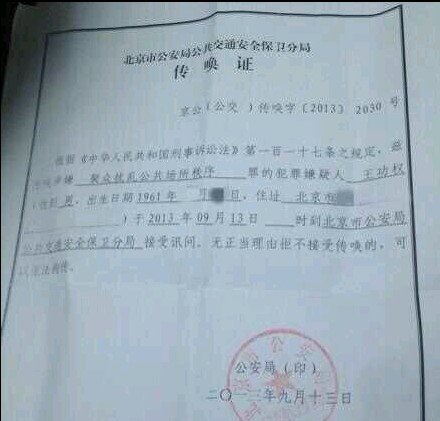 北京市公安局公共交通安全保卫分局
传唤证
京公（公交）传唤字〔2013〕2030号
根据《中华人民共和国刑事诉讼法》第一百一十七条之规定，兹
涉嫌 聚众扰乱公共场所秩序 罪的犯罪嫌疑人 王功权
（性别 男，出生日期 1961年 月 日，住址 北京市
）于2013年09月13日 时到北京市公安局
公共交通安全保卫分局 接受讯问。无正当理由拒不接受传唤的，可
以依法拘传。
公安局（印）
二〇一三年九月十三日